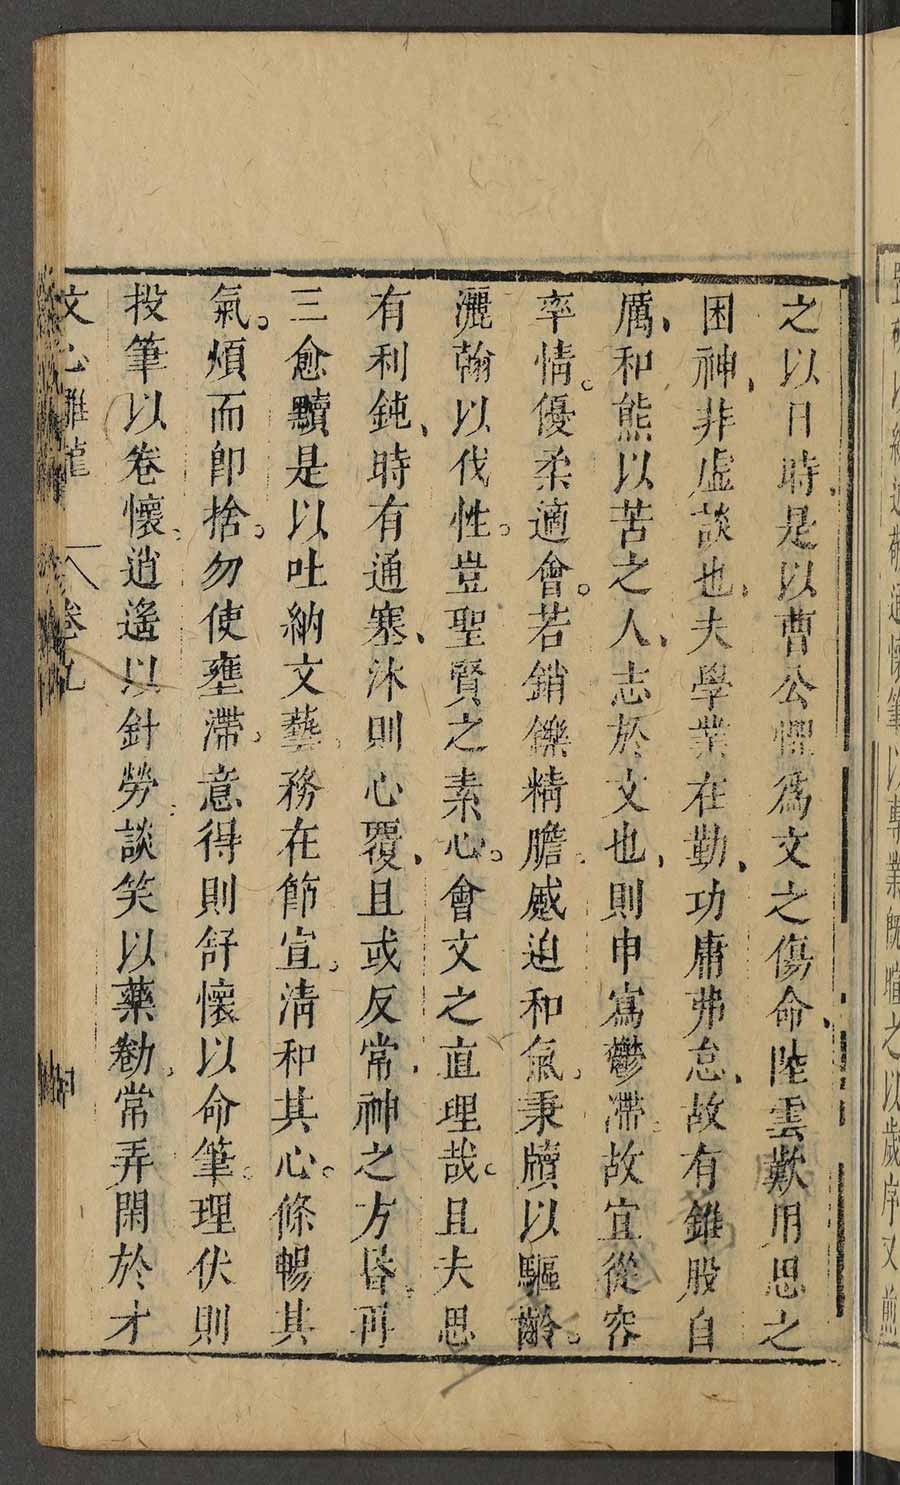 之以日時是以曹公懼爲文之傷命陸雲歎用思之
困神非虛談也夫學業在勤功庸弗怠故有錐股自
厲和熊以苦之人志於文也則申寫鬱滯故宜從容
率情優柔適會若銷鑠精膽蹙迫和氣秉牘以驅齡
灑翰以伐性豈聖賢之素心會文之直理哉且夫思
有利鈍時有通塞沐則心覆且或反常神之方昏再
三愈黷是以吐納文藝務在節宣清和其心條暢其
氣煩而卽捨勿使壅滯意得則舒懷以命筆理伏則
投筆以卷懷逍遙以針勞談笑以藥勌常弄閑於才
文心雕龍 卷九